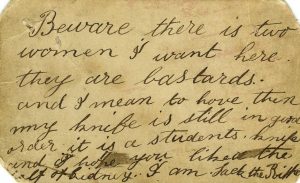 Beware there is two
women I want here.
they are bastards.
and I mean to have them
my knife is still in good
order it is a students knife
and I hope you liked the
half of kidney. I am Jack the Ripper